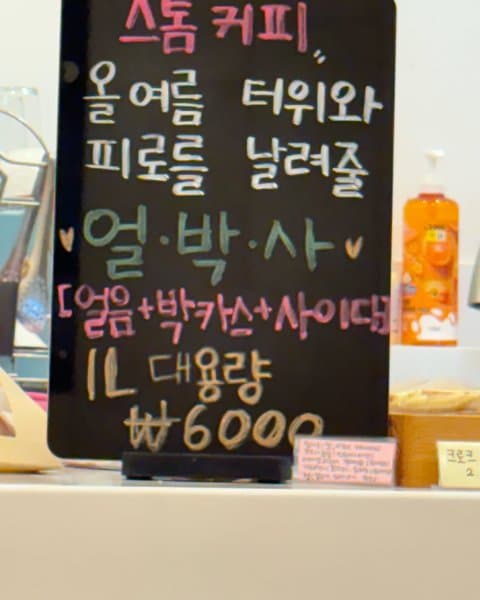 스톰 커피
올 여름 터위와
피로를 날려줄
얼·박·사
[얼음+박카스+사이다]
1L 대용량
₩6000
크로크
2